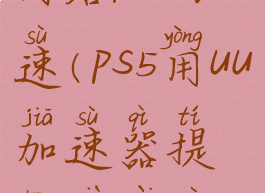 sù yòng
速(PS5用UU
jiā sù qì tí
加速器提